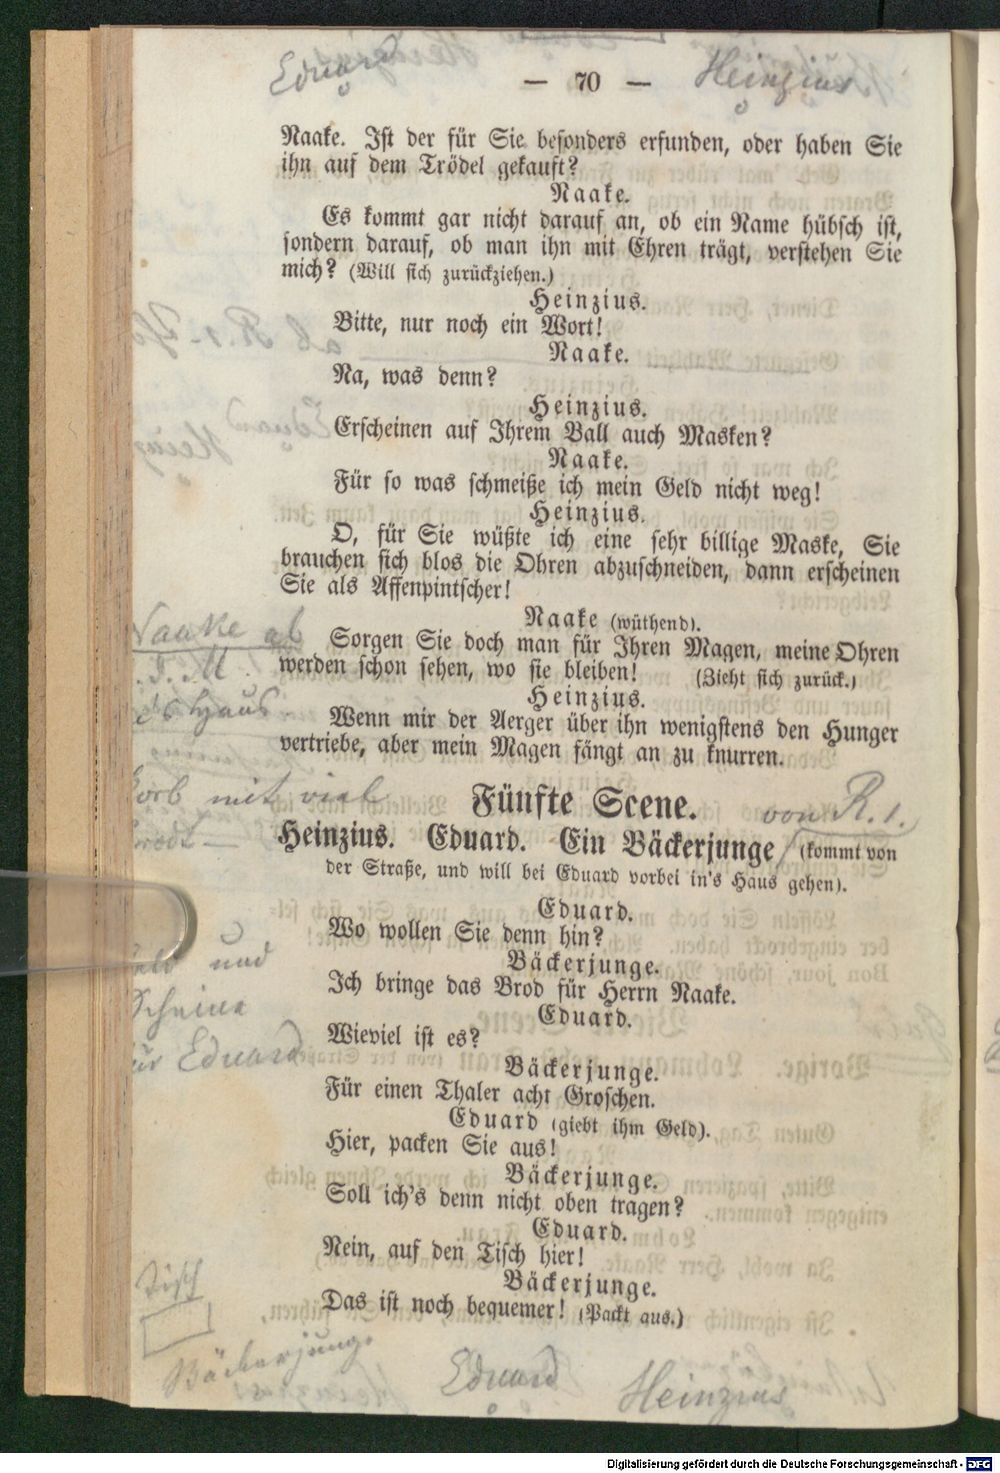 Eduard
Heinzius
— 70 —
Naake. Ist der für Sie besonders erfunden, oder haben Sie
ihn auf dem Trödel gekauft?
Naake.
Es kommt gar nicht darauf an, ob ein Name hübsch ist,
sondern darauf, ob man ihn mit Ehren trägt, verstehen Sie
mich? (Will sich zurückziehen.)
Heinzius.
Bitte, nur noch ein Wort!
Naake.
Na, was denn?
Heinzius.
Erscheinen auf Ihrem Ball auch Masken?
Naake.
Für so was schmeiße ich mein Geld nicht weg!
Heinzius.
O, für Sie wüßte ich eine sehr billige Maske, Sie
brauchen sich blos die Ohren abzuschneiden, dann erscheinen
Sie als Affenpintscher!
Naake (wüthend).
Naake ab
Sorgen Sie doch man für Ihren Magen, meine Ohren
werden schon sehen, wo sie bleiben! (Zieht sich zurück.)
Heinzius.
Haus
Wenn mir der Aerger über ihn wenigstens den Hunger
vertriebe, aber mein Magen fängt an zu knurren.
Korb mit viel
Fünfte Scene.
von R. 1.
Heinzius. Eduard. Ein Bäckerjunge (kommt von
der Straße, und will bei Eduard vorbei in's Haus gehen).
Eduard.
Wo wollen Sie denn hin?
Bäckerjunge.
Geld und
Ich bringe das Brod für Herrn Naake.
Scheine
Eduard.
Wieviel ist es?
für Eduard
Bäckerjunge.
Für einen Thaler acht Groschen.
Eduard (giebt ihm Geld).
Hier, packen Sie aus!
Bäckerjunge.
Soll ich's denn nicht oben tragen?
Eduard.
Nein, auf den Tisch hier!
Bäckerjunge.
Tisch
Das ist noch bequemer! (Packt aus.)
Bäckerjunge
Eduard
Heinzius
Digitalisierung gefördert durch die Deutsche Forschungsgemeinschaft - DFG